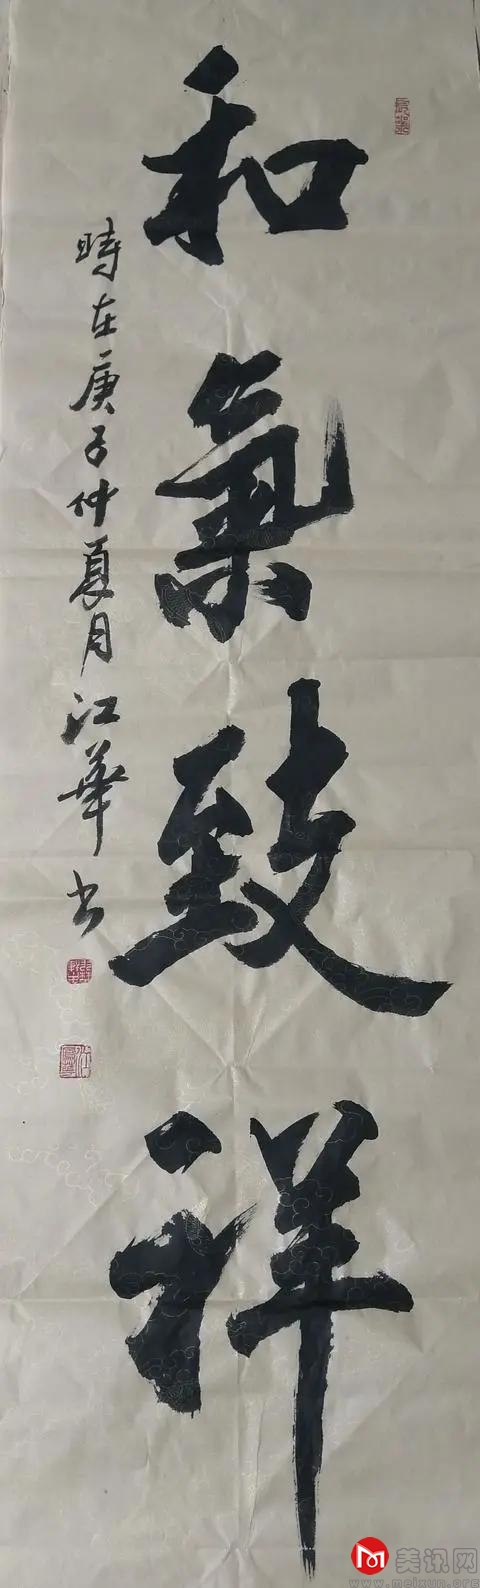 和氣致祥
時在庚子仲夏月江華书
美讯网
www.meixun.org